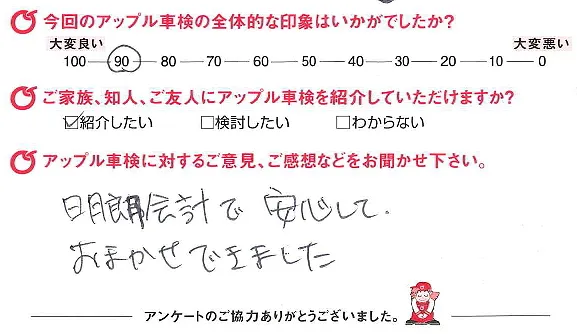 今回のアップル車検の全体的な印象はいかがでしたか?
大変良い 大変悪い
100 90 80 70 60 50 40 30 20 10 0
ご家族、知人、ご友人にアップル車検を紹介していただけますか?
☑紹介したい □検討したい □わからない
アップル車検に対するご意見、ご感想などをお聞かせ下さい。
明朗会計で 安心して.
おまかせできました
アンケートのご協力ありがとうございました。